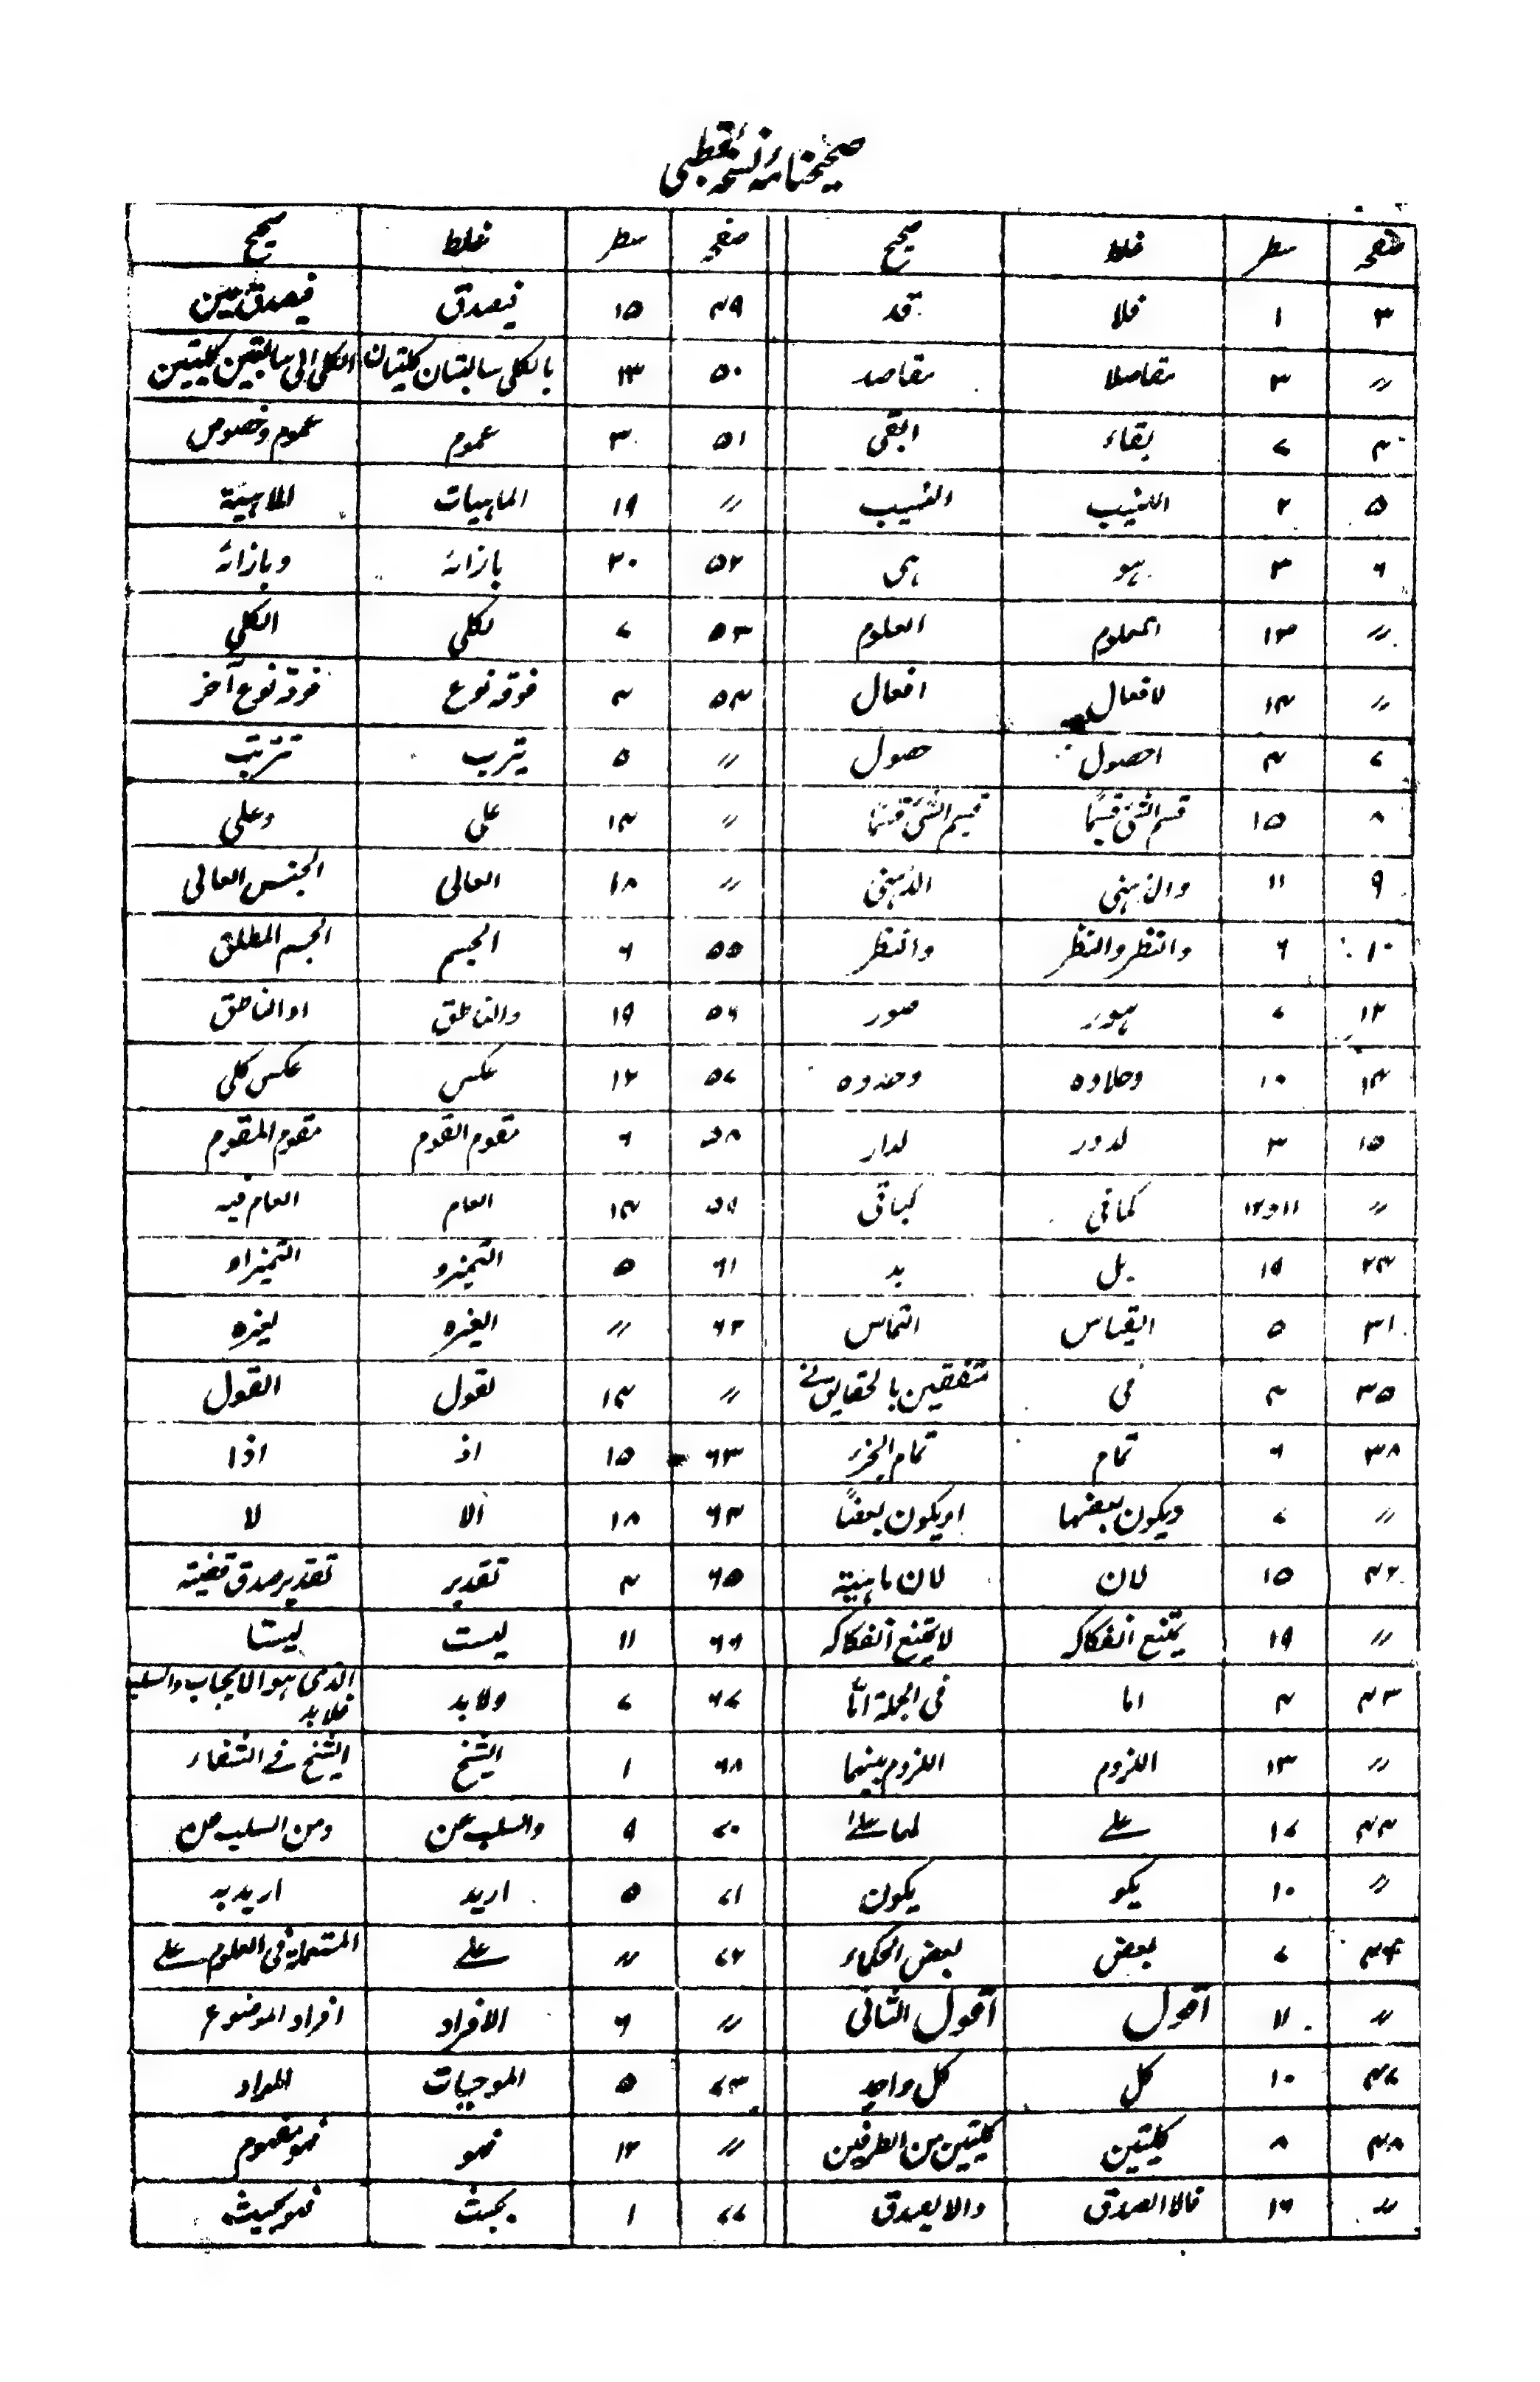 صحیحنامۂ نسخۂ قطبی
صفحہ سطر غلط صحیح صفحہ سطر غلط صحیح
۳ ۱ فلا قد ۴۹ ۱۵ فیصدق فیصدق بین
〃 ۳ مقاصلا مقاصد ۵۰ ۱۳ بالکلی سالبتان کلیتان الکلی الی سالبتین کلیتین
۴ ۷ بقاء ابقی ۵۱ ۳ عموم عموم وخصوص
۵ ۲ اللنیب النسیب 〃 ۱۹ الماہیات الماہیة
۶ ۳ ہو ہی ۵۲ ۲۰ بازائہ وبازائہ
〃 ۱۳ المعلوم العلوم ۵۳ ۷ لکلی الکلی
〃 ۱۴ لافعال افعال ۵۴ ۴ فوقہ نوع فوقہ نوع آخر
۷ ۴ احصول حصول 〃 ۵ یترب تترتب
۸ ۱۵ قسم الشئ قسیمًا قسیم الشئ قسمًا 〃 ۱۴ علی وعلی
۹ ۱۱ والذہنی الذہنی 〃 ۱۸ العالی الجنس العالی
۱۰ ۶ والنظر والنظر والنظر ۵۵ ۶ الجسم الجسم المطلق
۱۲ ۷ ہور صور ۵۶ ۱۹ والناطق او الناطق
۱۴ ۱۰ وحلاوہ وحدوہ ۵۷ ۱۲ عکس عکس کلی
۱۵ ۳ لدور لدار ۵۸ ۶ مقوم القوم مقوم المقوم
〃 ۱۱و۱۲ کمافی کباقی ۵۹ ۱۴ العام العام فیہ
۲۴ ۱۹ بل بد ۶۱ ۵ التمیزو التمیزاو
۳۱ ۵ القیاس التماس ۶۲ 〃 الغیرہ لغیرہ
۳۵ ۴ فی متفقین بالحقایق فے 〃 ۱۴ لقول القول
۳۸ ۶ تمام تمام الجزء ۶۳ ۱۵ اذ اذا
〃 ۷ ویکون بعضہا اویکون بعضًا ۶۴ ۱۸ الا لا
۴۲ ۱۵ لان لان ماہیة ۶۵ ۴ تقدیر تقدیر صدق قضیة
〃 ۱۹ یمتنع انفکاکہ لایمتنع انفکاکہ ۶۶ ۱۱ لیست لیستا
۴۳ ۴ اما فی الجملة امّا ۶۷ ۷ ولابد الذی ہو الایجاب والسلب فلابد
〃 ۱۳ اللزوم اللزوم بینہما ۶۸ ۱ الشیخ الشیخ فے الشفاء
۴۴ ۱۷ علے لما علے ۷۰ ۹ والسلب عن ومن السلب عن
〃 ۱۰ یکو یکون ۷۱ ۵ ارید ارید بہ
۴۶ ۷ بعض بعض الحکماء ۷۲ 〃 علے المستعملة فی العلوم علے
〃 ۱۱ اقول اقول الثانی 〃 ۶ الافراد افراد الموضوع
۴۷ ۱۰ کل کل واحد ۷۳ ۵ الموجبات المواد
۴۸ ۸ کلیتین کلیتین من الطرفین 〃 ۱۲ فہو فہو مفہوم
〃 ۱۶ فالا الصدق والا یصدق ۷۷ ۱ بحیث فہو بحیث